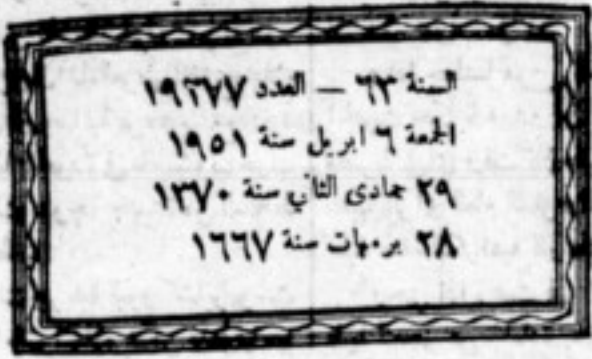 السنة ٦٣ — العدد ١٩٦٧٧
الجمعة ٦ ابريل سنة ١٩٥١
٢٩ جمادى الثاني سنة ١٣٧٠
٢٨ برمهات سنة ١٦٦٧